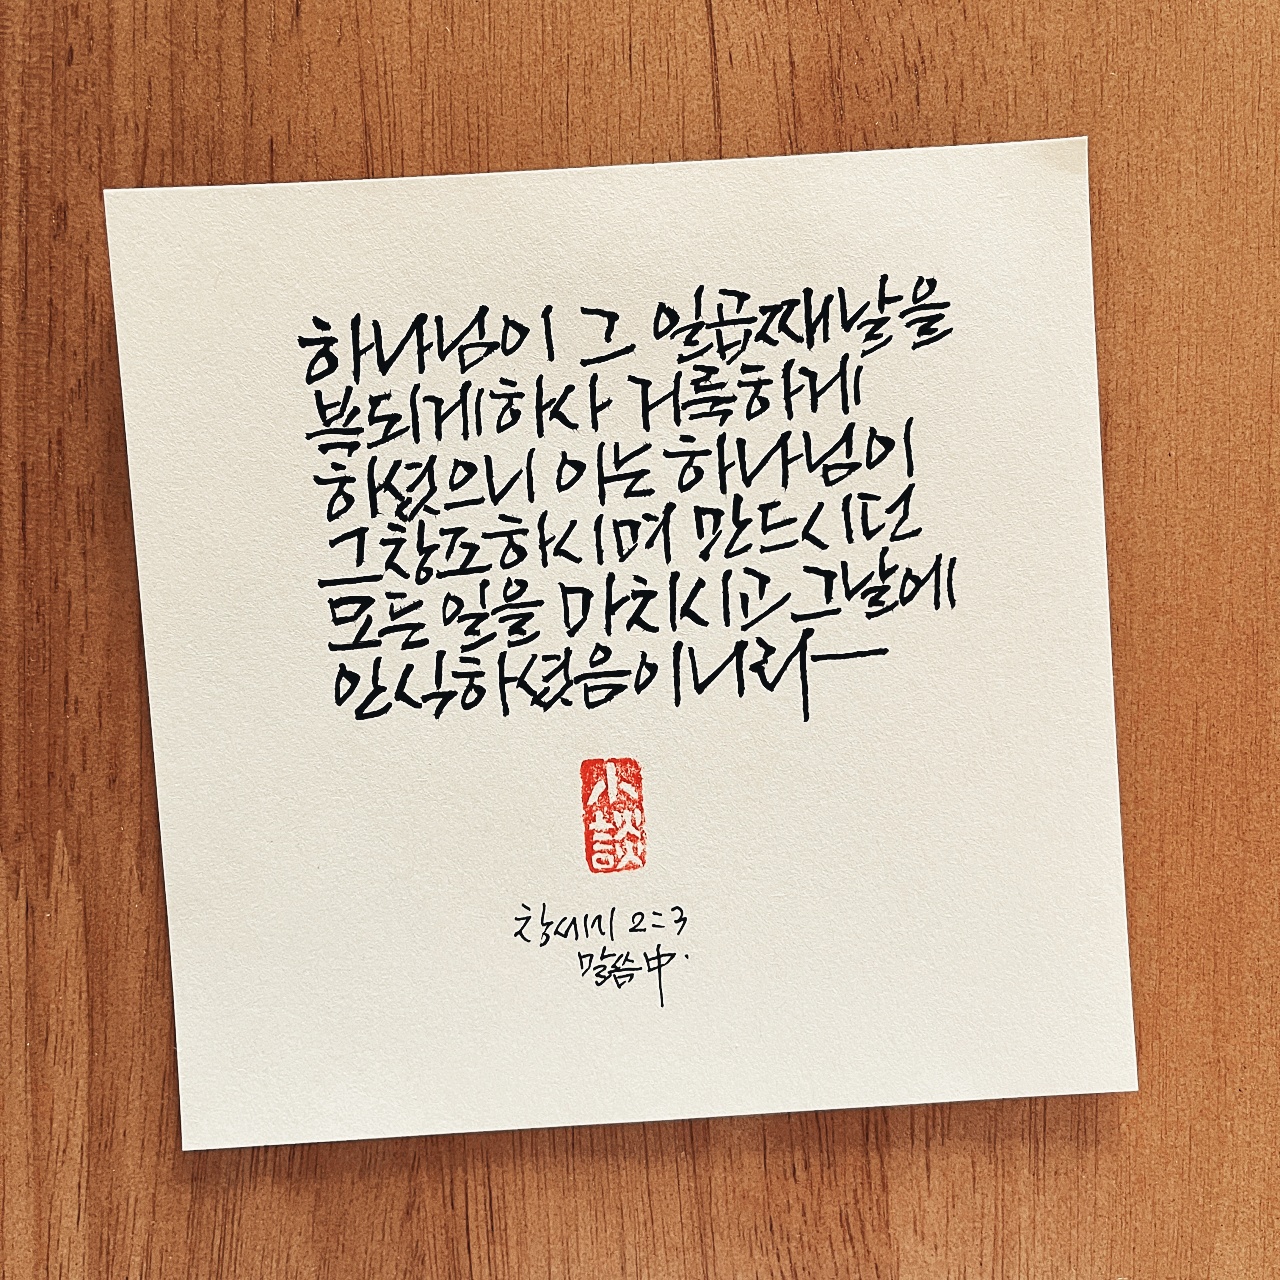 하나님이 그 일곱째날을
복되게하사 거룩하게
하셨으니 이는 하나님이
그창조하시며 만드시던
모든 일을 마치시고 그날에
안식하셨음이니라
小談
창세기 2:3
말씀中.